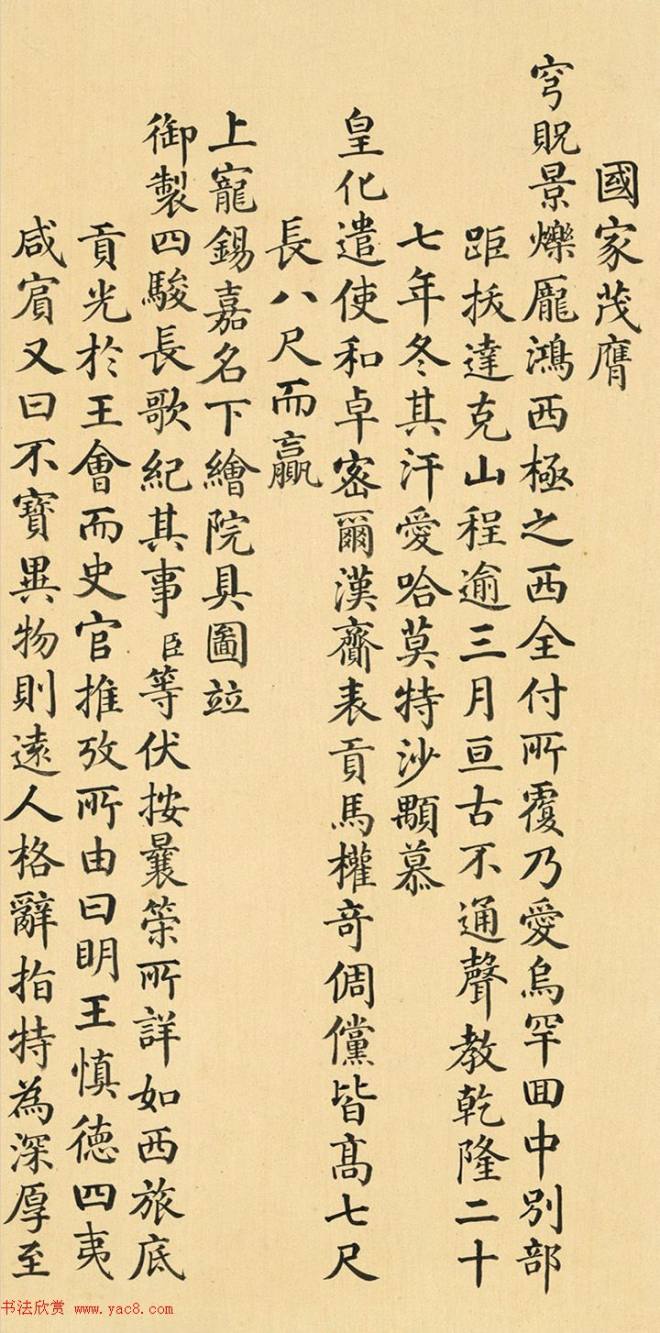 國家茂膺
穹貺景爍厖鴻西極之西全付所覆乃愛烏罕回中別部
距拔達克山程逾三月亘古不通聲教乾隆二十
七年冬其汗愛哈莫特沙顒慕
皇化遣使和卓密爾漢齎表貢馬權奇倜儻皆高七尺
長八尺而贏
上寵錫嘉名下繪院具圖竝
御製四駿長歌紀其事臣等伏按曩策所詳如西旅底
貢光於王會而史官推攷所由曰明王慎德四夷
咸賓又曰不寶異物則遠人格辭指特為深厚至
书法欣赏 www.yac8.com